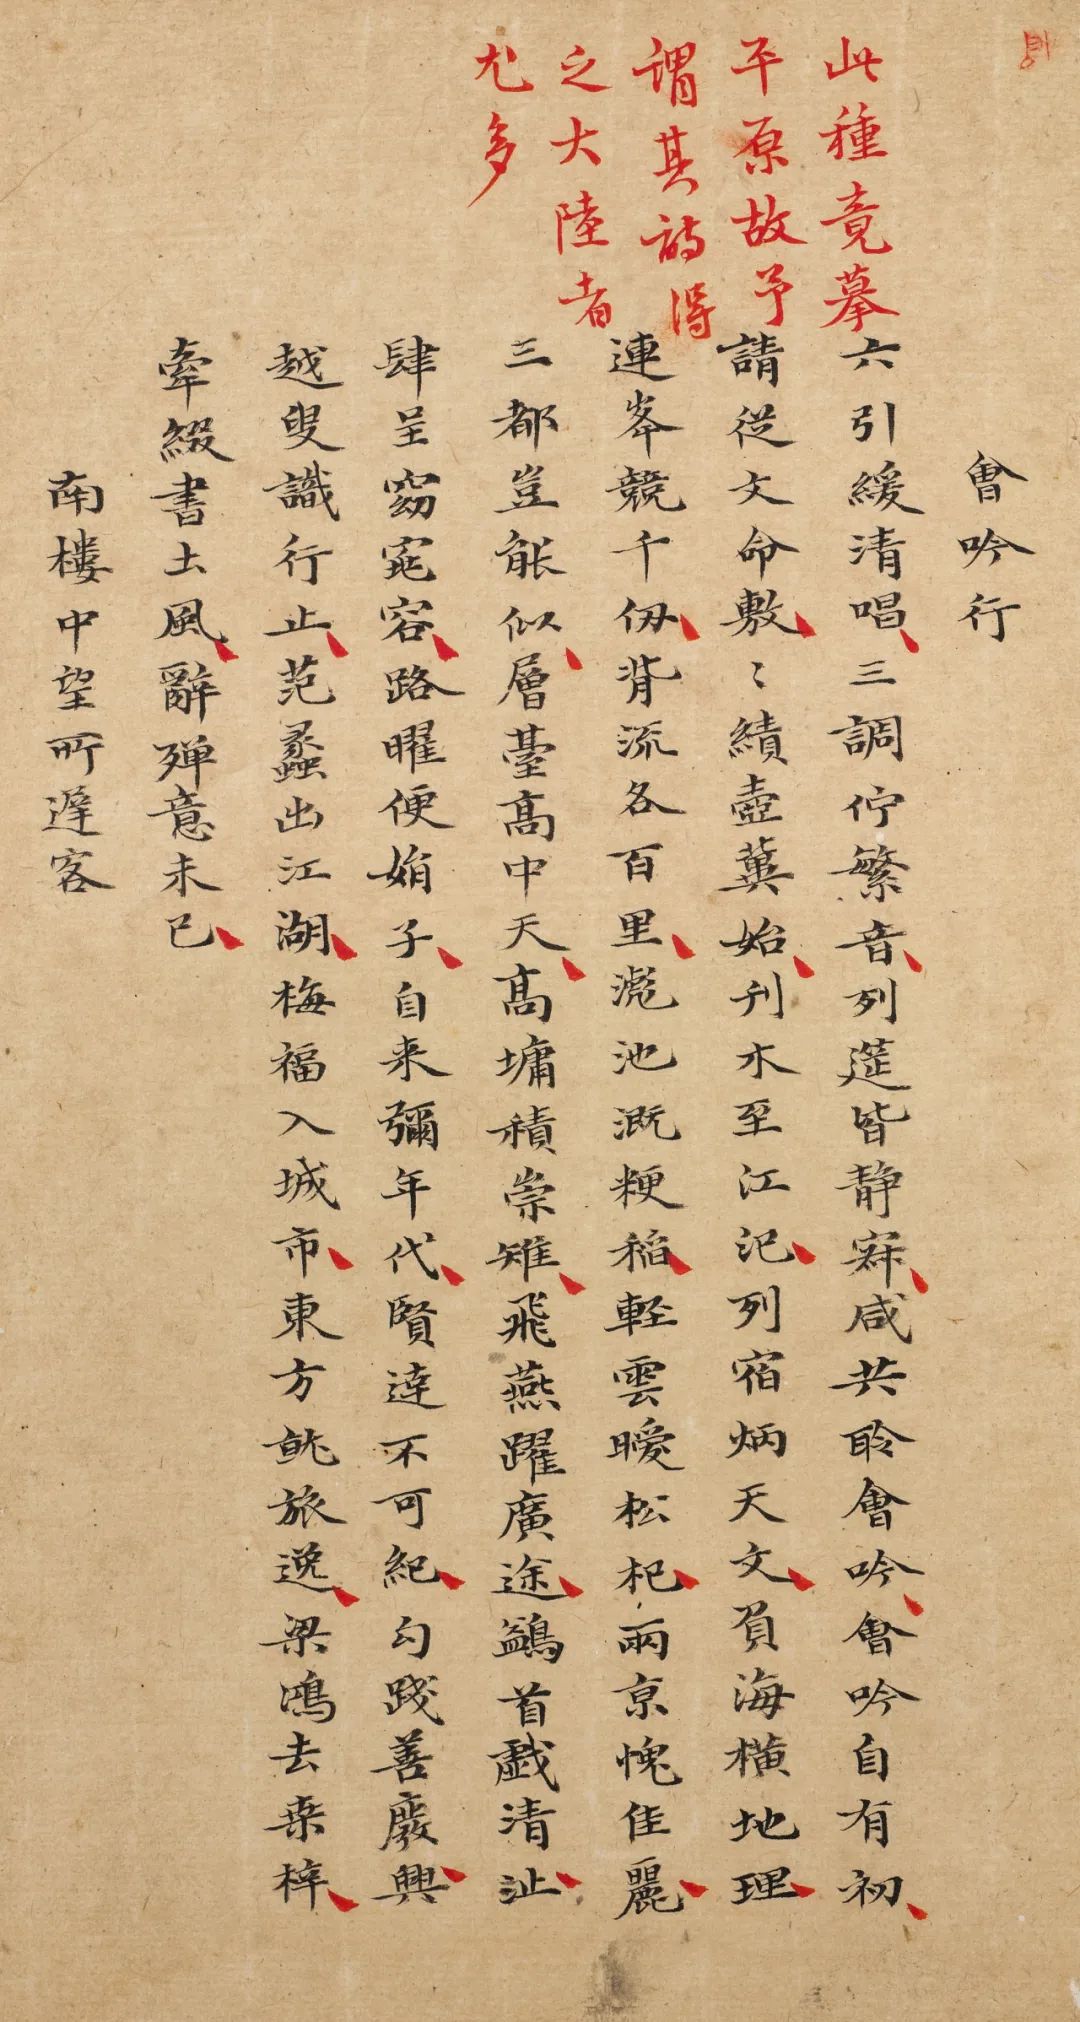 此種竟摹
平原故予
謂其詩得
之大陸者
尤多
會吟行
六引緩清唱三調佇繁音列筵皆静寂咸共聆會吟會吟自有初
請從文命敷〻績壺冀始刋木至江汜列宿炳天文負海橫地理
連峯競千仭背流各百里滮池溉粳稻輕雲曖松杞兩京愧佳麗
三都豈能似層臺髙中天髙墉積崇雉飛燕躍廣途鷁首戲清沚
肆呈窈窕容路曜便娟子自来彌年代賢達不可紀勾踐善廢興
越叟識行止范蠡出江湖梅福入城市東方就旅逸梁鴻去桒梓
牽綴書土風辭殫意未已
南樓中望所遲客